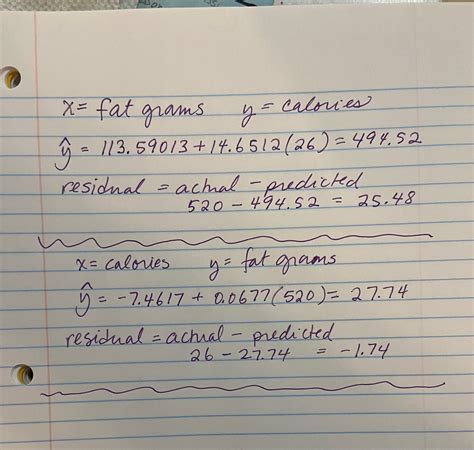 x = fat grams y = calories
ŷ = 113.59013 + 14.6512(26) = 494.52
residual = actual - predicted
520 - 494.52 = 25.48
x = calories y = fat grams
ŷ = -7.4617 + 0.0677(520) = 27.74
residual = actual - predicted
26 - 27.74 = -1.74